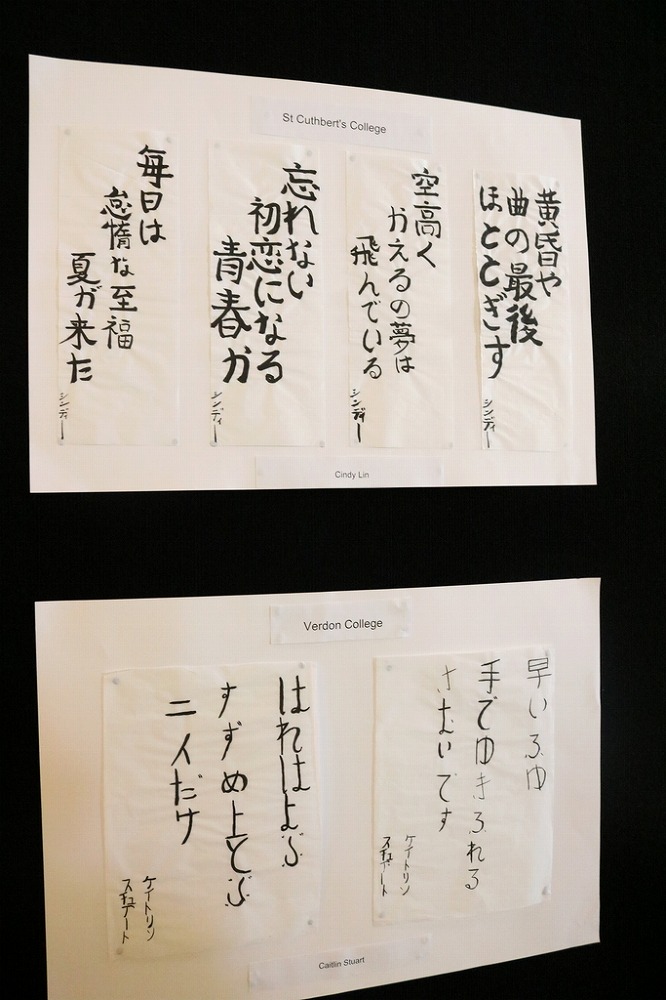 St Cuthbert's College
黄昏や
曲の最後
ほととぎす
シンディー
空高く
かえるの夢は
飛んでいる
シンディー
忘れない
初恋になる
青春か
シンディー
毎日は
怠惰な至福
夏が来た
シンディー
Cindy Lin
Verdon College
早いふゆ
手でゆきふれる
さむいです
ケイトリン
スチュアート
はれはよぶ
すずめ上とぶ
二人だけ
ケイトリン
スチュアート
Caitlin Stuart